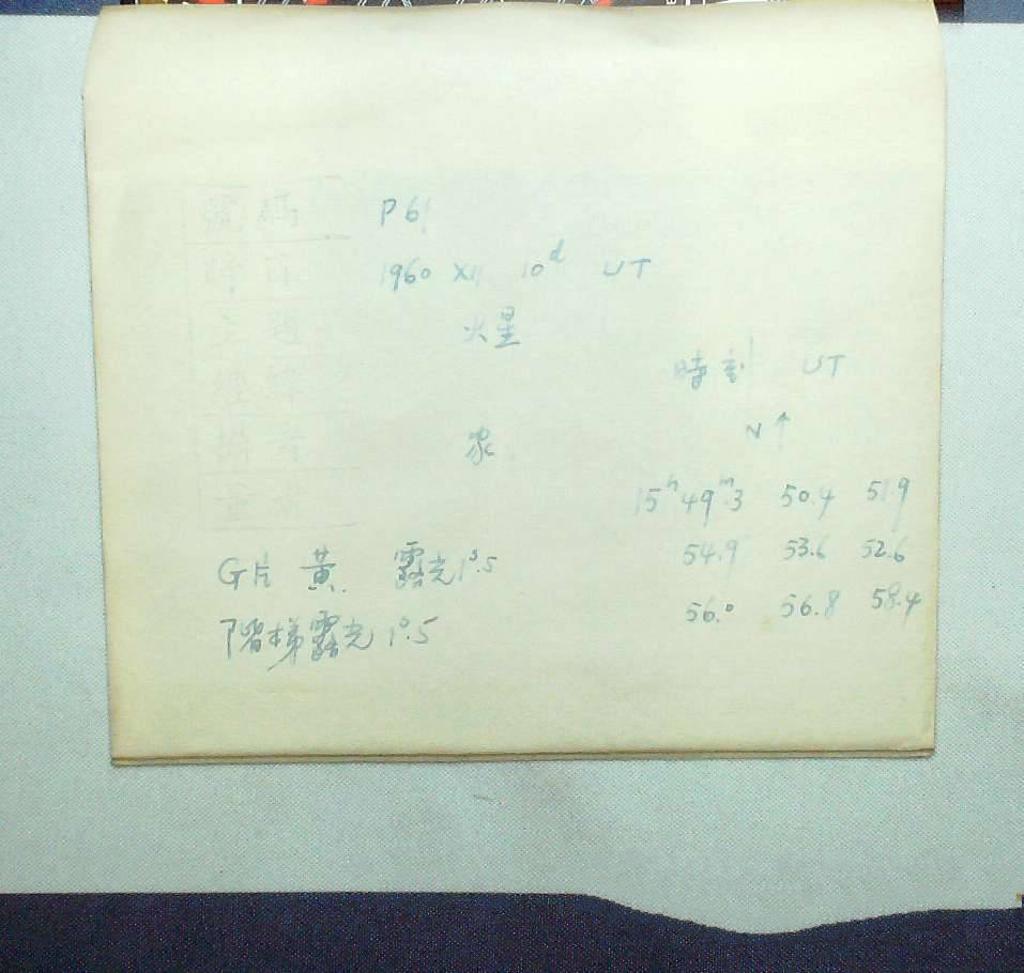 號碼 P61
1960 XII 10ᵈ UT
火星
時刻 UT
N↑
家
15ʰ49ᵐ.3 50.4 51.9
54.9 53.6 52.6
56.0 56.8 58.4
G片 黃 露光1ˢ.5
階梯露光 1ˢ.5